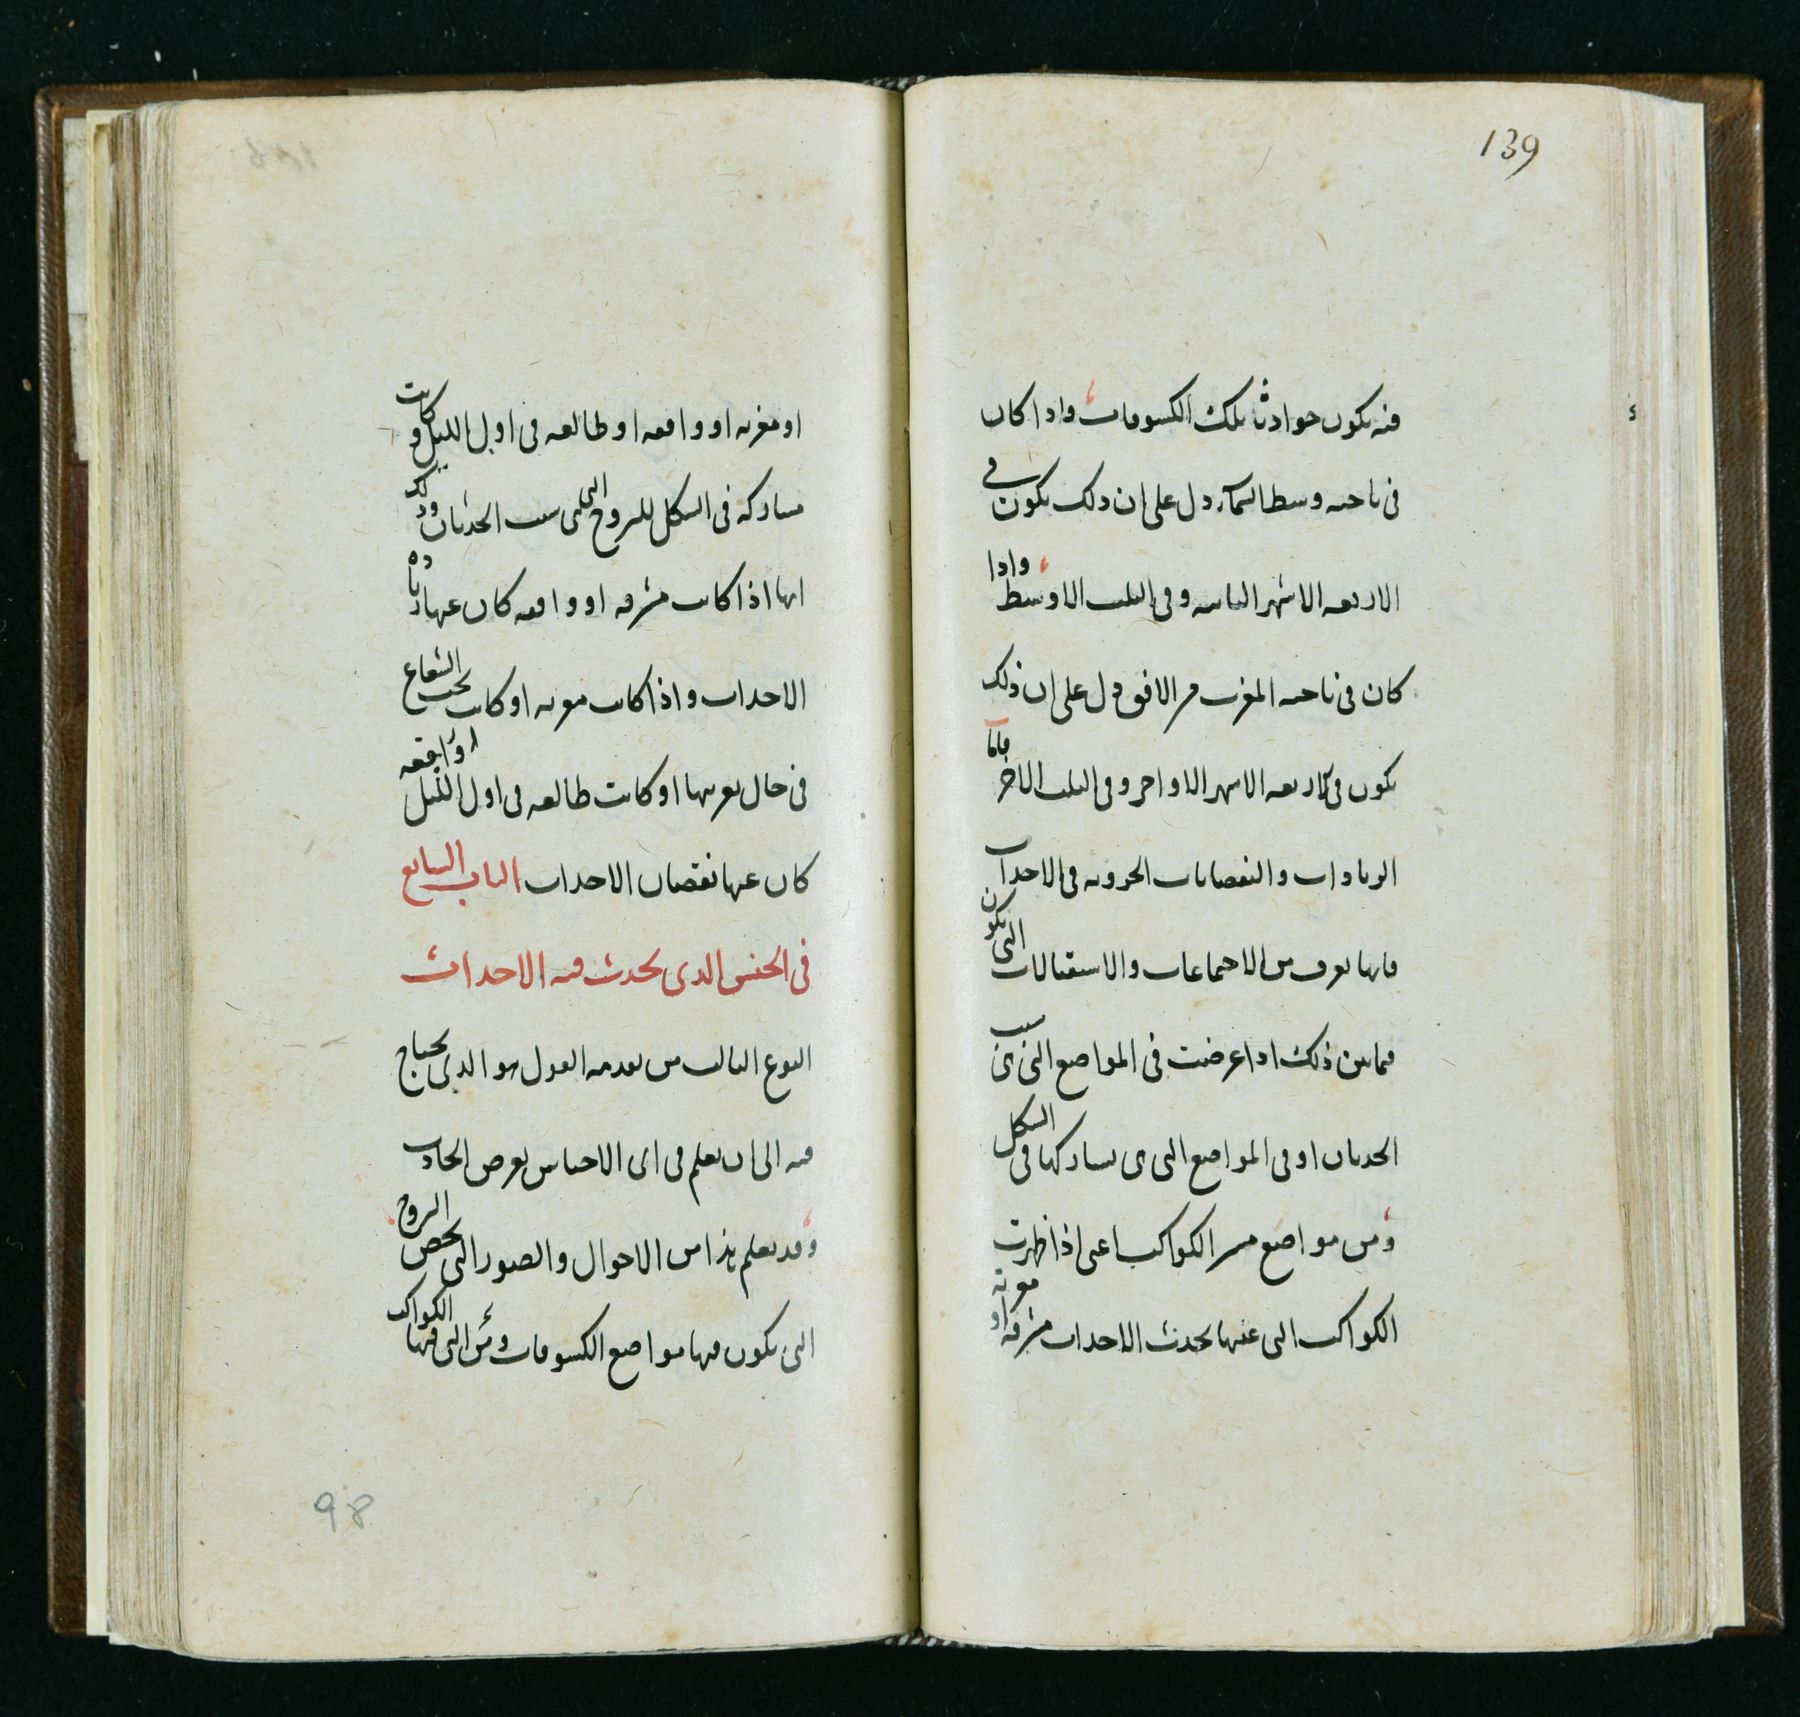 139
فيه يكون حوادث تلك الكسوفات واذا كان
فى ناحيه وسط السماء دل على ان ذلك يكون فى
الاربعه الاشهر الثانيه وفى الثلث الاوسط واذا
كان فى ناحيه المغرب من الافق دل على ان ذلك
يكون فى الاربعه الاشهر الاواخر وفى الثلث الاخر فاما
الزيادات والنقصانات الجزويه فى الاحداث
فانها تعرف من الاجتماعات والاستقبالات التى تكون
فيما بين ذلك اذا عرضت فى المواضع التى هى سبب
الحدثان او فى المواضع التى هى تشاركها فى الشكل
ومن مواضع مسير الكواكب اعنى اذا ظهرت
الكواكب التى عنها يحدث الاحداث مشرقه او
او مغربه او واقفه او طالعه فى اول الليل وكانت
مشاركه فى الشكل للبروج التى هى سبب الحدثان وذلك
انها اذا كانت مشرقه او واقفه كان عنها زياده
الاحداث واذا كانت مغربه او كانت تحت الشعاع
فى حال تغريبها او كانت طالعه فى اول الليل او واقفه
كان عنها نقصان الاحداث الباب السابع
فى الجنس الذى يحدث فيه الاحداث
النوع الثالث من تقدمه القول هو الذى يحتاج
فيه الى ان يعلم فى اى الاجناس يعرض الحادث
وقد يعلم هذا من الاحوال والصور التى تخص البروج
التى يكون فيها مواضع الكسوفات ومن التى فيها الكواكب
98